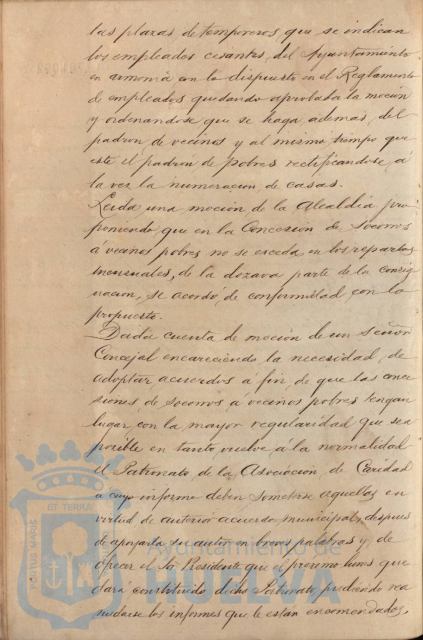 las plazas de temporeros que se indican
los empleados cesantes del Ayuntamiento
en armonía con lo dispuesto en el Reglamento
de empleados quedando aprobada la moción
y ordenandose que se haga además, del
padron de vecinos y al mismo tiempo que
este el padron de pobres rectificandose, á
la vez la numeracion de casas.
Leida una moción de la Alcaldia pro-
poniendo que en la Concesion de socorros
á vecinos pobres no se exceda en los repartos
mensuales, de la dozava parte de la consig
nacion, se acordó, de conformidad con lo
propuesto.
Dada cuenta de moción de un señor
Concejal encareciendo la necesidad, de
adoptar acuerdos á fin, de que las conce
siones de socorros á vecinos pobres tengan
lugar, con la mayor regularidad que sea
posible en tanto vuelve á la normalidad
el Patronato de la Asociacion de Caridad
a cuyo informe deben someterse aquellas en
virtud de anterior acuerdo municipal, despues
de apoyarla su autor en breves palabras y de
ofrecer el Sr Presidente que el proximo lunes que
dará constituido dicho Patronato pudiendo rea
nudarse los informes que le estan encomendados,
PORTUS MARIS
ET TERRÆ
Ayuntamiento de
HUELVA